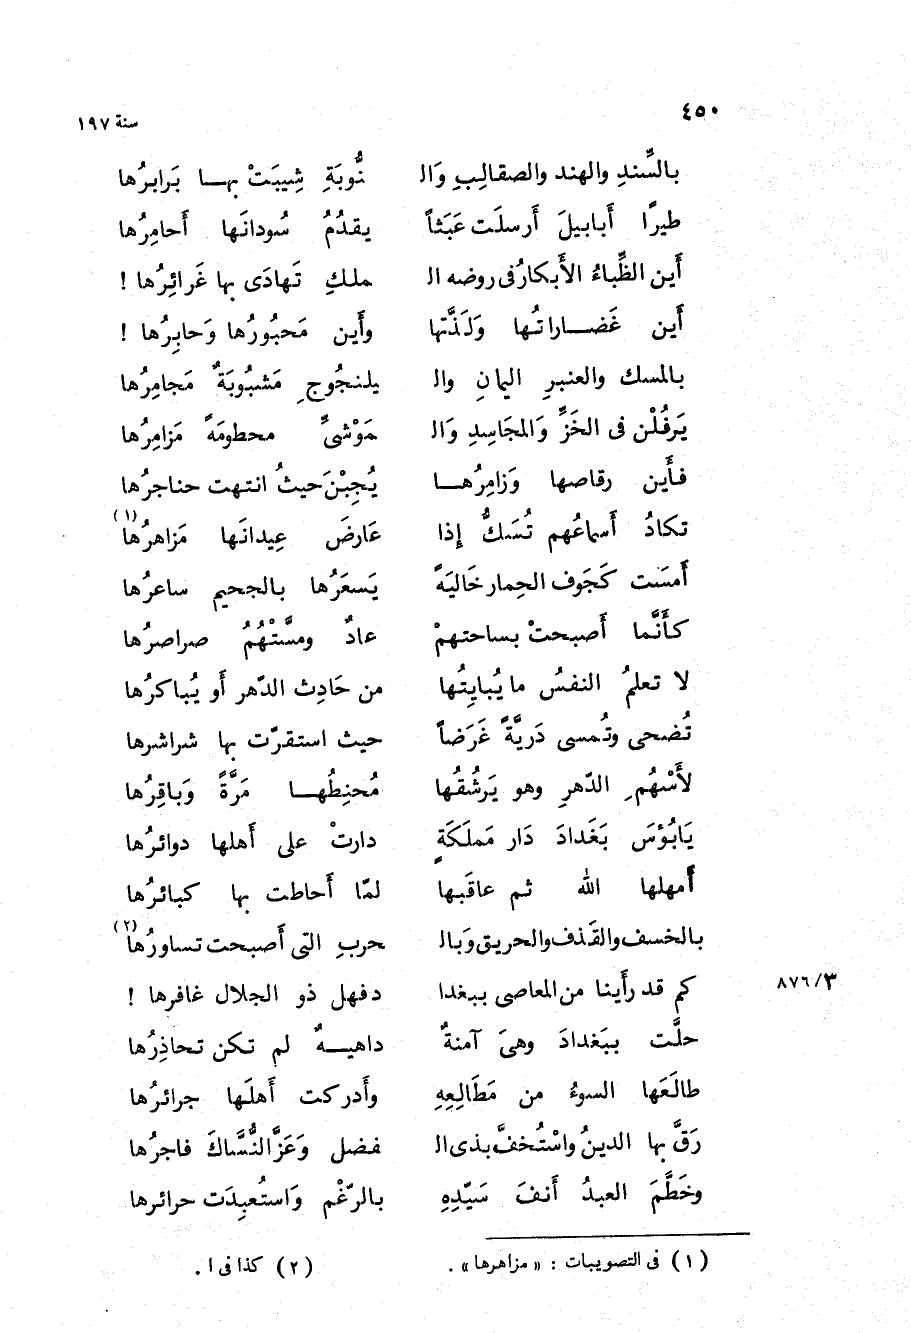 ٤٥٠ سنة ١٩٧
بالسِّندِ والهند والصقالبِ وَال نُّوبَةِ شِيبَتْ بهـا بَرابرُها
طيرًا أبابيلَ أرسلَت عَبَثاً يقدُمُ سُودانَها أَحامِرُها
أَين الظِّباءُ الأَبكارُ فى روضه ال ملكِ تَهادَى بها غَرائِرُها !
أَين غَضــاراتُـها وَلَذَّتها وأَين مَحبُورُها وَحابِرُها !
بالمسك والعنبرِ اليمانِ وال يلنجُوجِ مَشبُوبَةٌ مَجامِرُها
يَرفُلْن فى الخَزِّ وَالمجَاسِدِ وَال مَوْشىِّ محطومَةً مَزامِرُها
فأَين رقاصها وَزامِرُهــا يُجِبْنَ حيثُ انتهت حناجرُها
تكادُ أَسماعُهم تُسَكُّ إذا عَارضَ عِيدانَها مَزاهرُها (١)
أَمسَت كَجَوف الحِمار خَاليَةً يَسعَرُها بالجحيم ساعرُها
كأَنَّما أَصبحتْ بساحتهمْ عادٌ ومسَّتْهُمُ صراصرُها
لا تعلمُ النفسُ ما يُبايتُها من حَادِث الدّهر أَو يُباكرُها
تُضحى وتُمسى دَريَّةً غَرَضاً حيث استقرّت بها شراشرها
لأَسْهُمِ الدّهرِ وهو يَرشُقُها مُحنِطُهـا مَرَّةً وَباقِرُها
يَابُوْسَ بَغَدادَ دَار مَملَكَةٍ دارتْ على أَهلها دوائرُها
أَمهلها الله ثم عاقَبها لمّا أَحاطت بها كبائرُها
بالخسف والقَذف والحريق وَبال حربِ التى أَصبحت تساورُها (٢)
كم قد رأَينا من المعاصى ببغدا دفهل ذو الجلال غافرها ! ٨٧٦/٣
حلَّت ببَغدادَ وهىَ آمنةٌ داهيــةٌ لم تكن تحاذِرُها
طالَعَها السوءُ من مَطَالِعِهِ وأَدركت أَهلَها جرائرُها
رَقَّ بها الدينُ واسْتُخفَّ بذى ال فضل وَعَزَّ النُّسَّاكَ فاجرُها
وخَطَّمَ العبدُ أَنفَ سَيّدِهِ بالرّغْم وَاستُعبِدَت حرائرها
(١) فى التصويبات : « مزاهرها » . (٢) كذا فى ا .